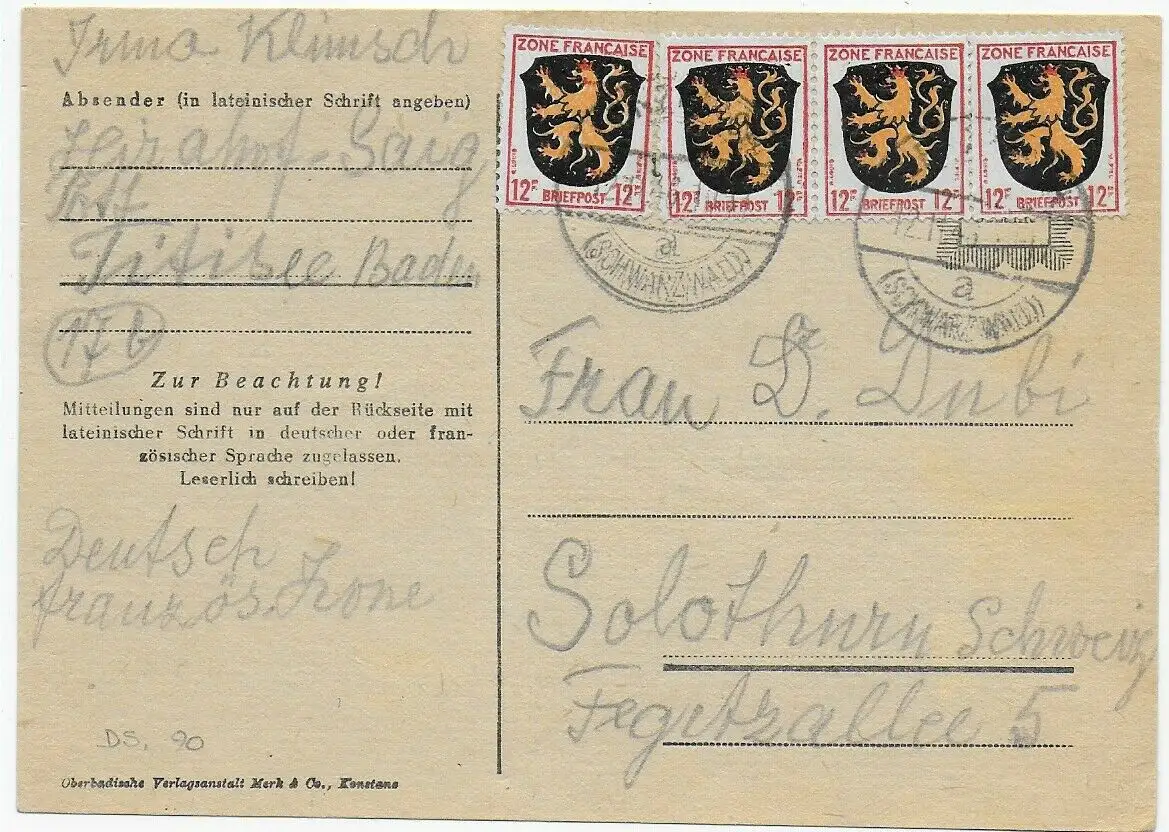 Irma Klimsch
Absender (in lateinischer Schrift angeben)
Saig
Post
Titisee Baden
17b
Zur Beachtung!
Mitteilungen sind nur auf der Rückseite mit
lateinischer Schrift in deutscher oder fran-
zösischer Sprache zugelassen.
Leserlich schreiben!
Deutsch
französ. Zone
DS. 90
Oberbadische Verlagsanstalt Merk & Co., Konstanz
ZONE FRANÇAISE ZONE FRANÇAISE ZONE FRANÇAISE ZONE FRANÇAISE
12F BRIEFPOST 12F 12F BRIEFPOST 12F 12F BRIEFPOST 12F 12F BRIEFPOST 12F
a
(SCHWARZWALD)
a
(SCHWARZWALD)
Frau D. Dubi
Solothurn Schweiz
Fegetzallee 5